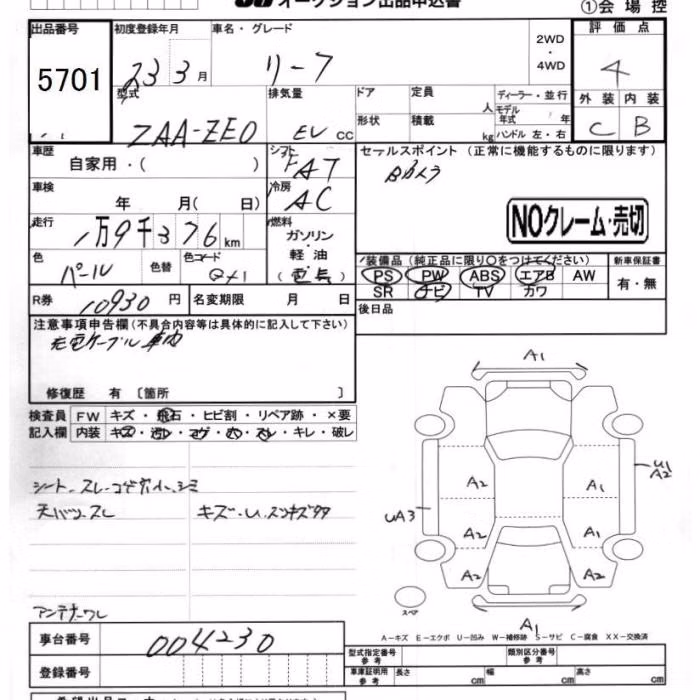 オークション出品申込書
①会場控
出品番号 初度登録年月 車名・グレード 評価点
5701
23 3月 リーフ
2WD・4WD
4
型式 排気量 ドア 定員 人 ディーラー・並行
外装 内装
モデル年式 年
ZAA-ZE0 EV cc
形状 積載 kg ハンドル 左・右
C B
車歴 シフト セールスポイント (正常に機能するものに限ります)
自家用・( )
FAT
車検 冷房
年 月( 日)
AC
NOクレーム・売切
走行 燃料
1万9千376km
ガソリン・軽油
(電気)
装備品 (純正品に限り○をつけてください) 新車保証書
色 色替 色コード
パール
PS PW ABS エアB AW
SR ナビ TV カワ
有・無
R券 10930円 名変期限 月 日
後日品
注意事項申告欄(不具合内容等は具体的に記入して下さい)
充電ケーブル車内
修復歴 有 〔箇所 〕
検査員 FW キズ・飛石・ヒビ割・リペア跡・×要
記入欄 内装 キレ・破レ
A1
A2 A1
A2 A1
A2 A2
A1
U1
A2
UA3
シート スレ
天バリ スレ
キズ・U
アンテナワレ
スペア
A-キズ E-エクボ U-凹み W-補修跡 S-サビ C-腐食 XX-交換済
車台番号 004230
登録番号
型式指定番号 参考 類別区分番号 参考
車庫証明用 参考 長さ cm 幅 cm 高さ cm